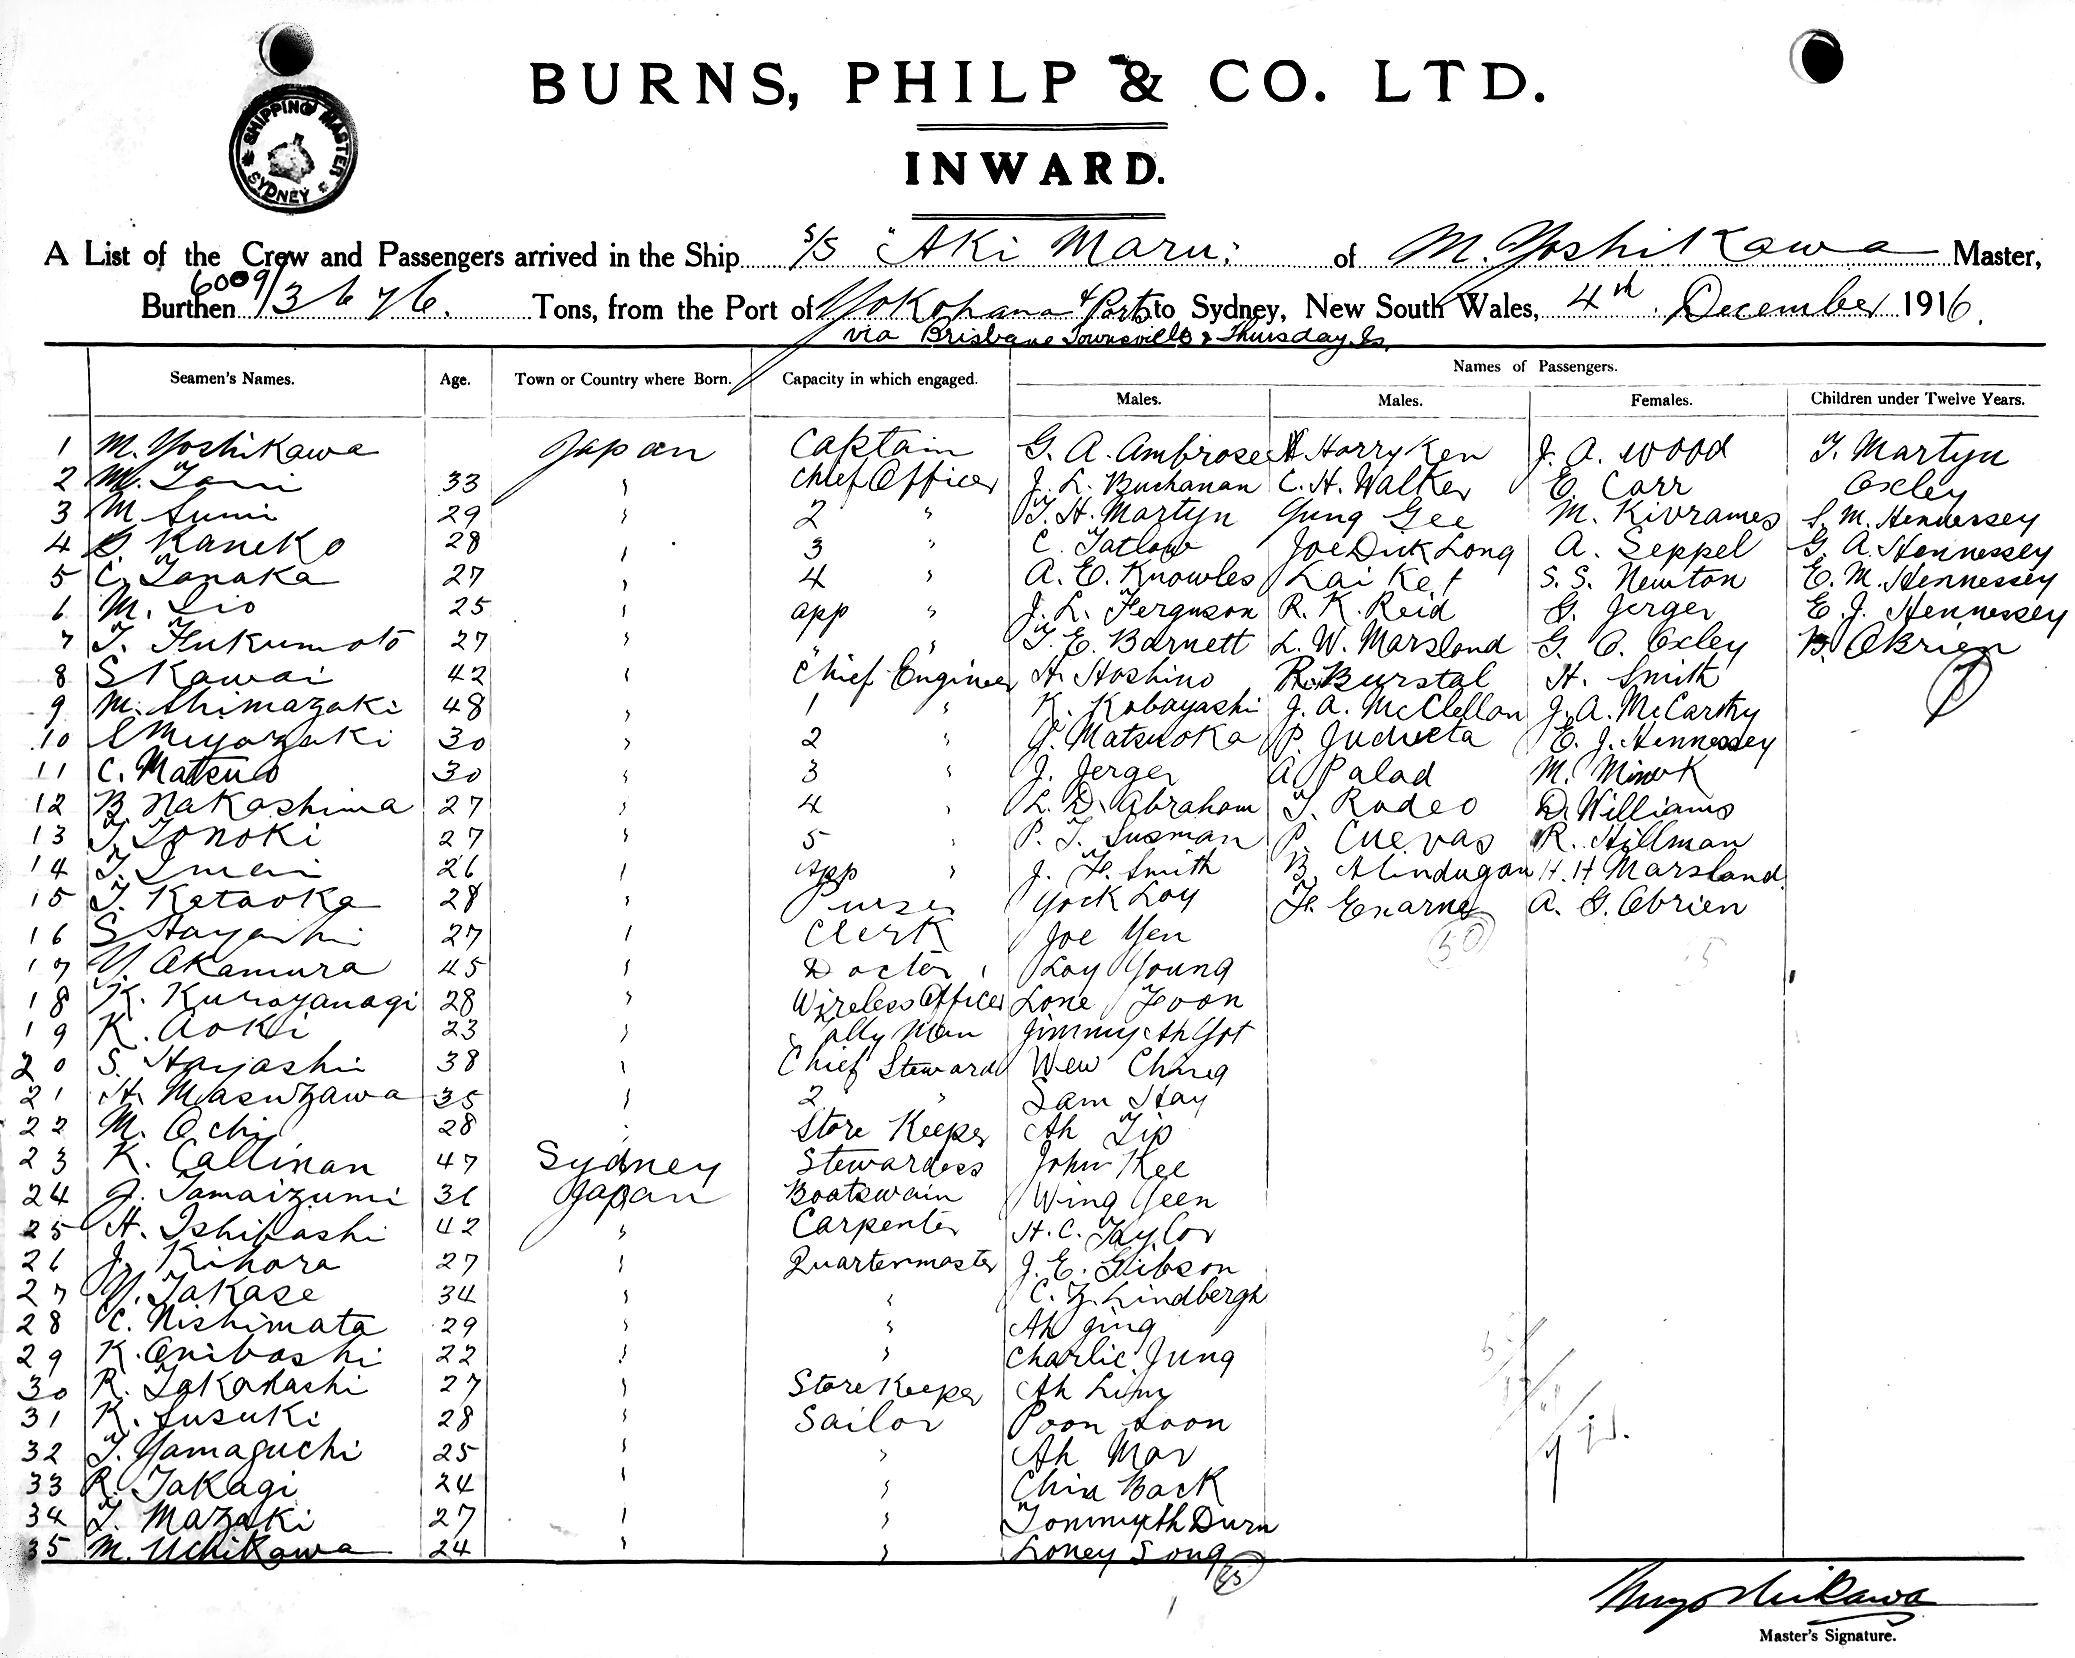 BURNS, PHILP & CO. LTD.
SHIPPING MASTER SYDNEY
INWARD.
A List of the Crew and Passengers arrived in the Ship S/S "Aki Maru" of M. Yoshikawa Master,
Burthen 6009/3676. Tons, from the Port of Yokohama & Ports to Sydney, New South Wales, 4th December 1916.
via Brisbane Townsville & Thursday Is.
Seamen's Names. Age. Town or Country where Born. Capacity in which engaged. Names of Passengers.
Males. Males. Females. Children under Twelve Years.
1 M. Yoshikawa Japan Captain G. A. Ambrose Harry Ken J. A. Wood T. Martyn
2 M. Tani 33 " Chief Officer J. L. Buchanan C. H. Walker E. Carr Oxley
3 M. Sumi 29 " 2 " T. H. Martyn Gung Gee M. Kivrames S. M. Hennessey
4 Kaneko 28 " 3 " C. Tatlow Joe Dick Long A. Seppel G. A. Hennessey
5 C. Tanaka 27 " 4 " A. E. Knowles Lai Ket S. S. Newton E. M. Hennessey
6 M. Iio 25 " app " J. L. Ferguson R. K. Reid G. Jerger E. J. Hennessey
7 T. Fukumoto 27 " " T. E. Barnett L. W. Marsland G. O. Oxley B. OBrien
8 S Kawai 42 " Chief Engineer H. Hoshino R. Burstal H. Smith
9 M. Shimazaki 48 " 1 " K. Kobayashi J. A. McClellan J. A. McCarthy
10 S Miyazaki 30 " 2 " J. Matsuoka P. Judieeta E. J. Hennessey
11 C. Matsuo 30 " 3 " J. Jerger A Palad M. Minok
12 B. Nakashima 27 " 4 " L. D. Abraham T. Rodeo D. Williams
13 T. Tonoki 27 " 5 " P. T. Susman P. Cuevas R. Hillman
14 T. Imai 26 " app " J. F. Smith B. Alindugan H. H Marsland
15 T. Kataoka 28 " Purser Yock Loy F. Enarne A. G. Obrien
16 S Hayashi 27 " Clerk Joe Yen 50
17 Y. Akamura 45 " Doctor Loy Young
18 K. Kuroyanagi 28 " Wireless Officer Lone Foon
19 K. Aoki 23 " Tally Man Jimmy Ah Yot
20 S. Hayashi 38 " Chief Steward Wew Ching
21 H. Masuzawa 35 " 2 " Sam Hay
22 M. Ochi 28 " Store Keeper Ah Tip
23 K. Callinan 47 Sydney Stewardess John Kee
24 J. Tamaizumi 36 Japan Boatswain Wing Yeen
25 H. Ishibashi 42 " Carpenter H. C. Taylor
26 J. Kihara 27 " Quartermaster J. E. Gibson
27 Y. Takase 34 " " C. F. Lindbergh
28 C. Nishimata 29 " " Ah Jing
29 K. Onibashi 22 " " Charlie Jung
30 R. Takahashi 27 " Store Keeper Ah Limy
31 K. Susuki 28 " Sailor Poon Soon
32 T. Yamaguchi 25 " " Ah Mar
33 R. Takagi 24 " " Chin Back
34 T. Mazaki 27 " " Tommy Ah Durn
35 M. Uchikawa 24 " " Loney Song
M. Yoshikawa
Master's Signature.